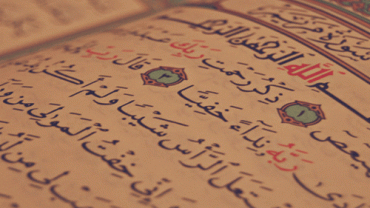 سُورَةُ مَرْيَمَ
اللَّهِ الرَّحْمَٰنِ الرَّحِيمِ
ـيعص ١ ذِكْرُ رَحْمَتِ رَبِّكَ
ـادَىٰ رَبَّهُ نِدَاءً خَفِيًّا ٣ قَالَ رَبِّ
ـتَعَلَ الرَّأْسُ شَيْبًا وَلَمْ أَكُنْ
إِنِّي خِفْتُ الْمَوَالِيَ مِنْ
لِي مِنْ